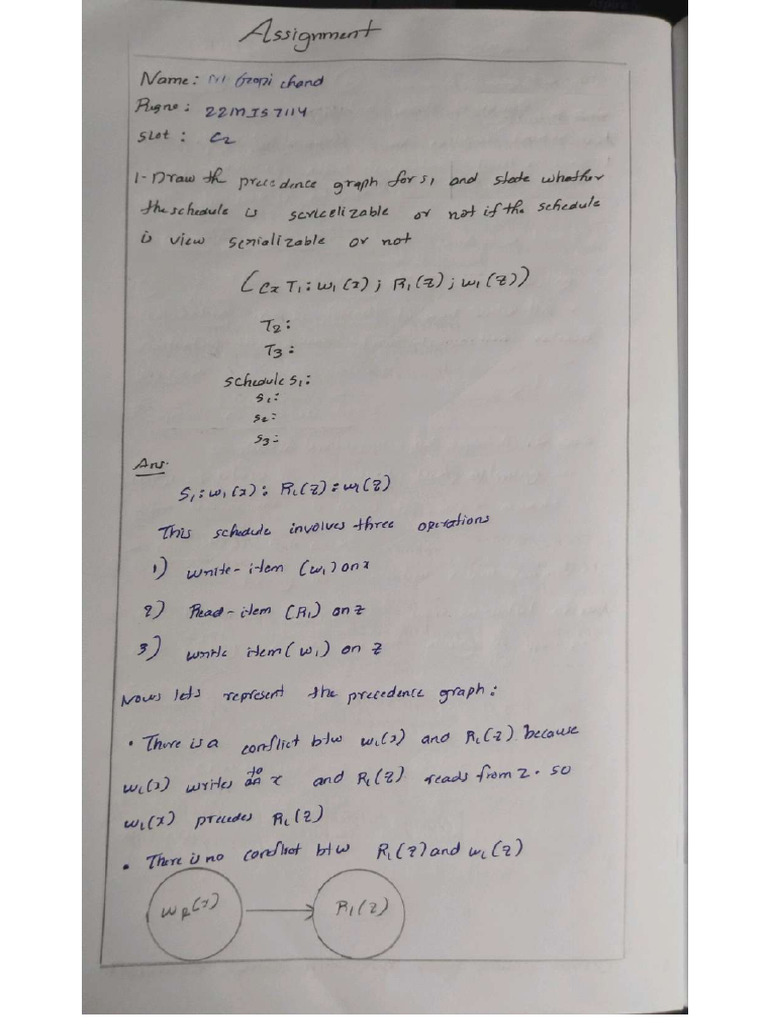 Assignment
Name: M Gopi chand
Regno: 22MIS7114
Slot: C2
1- Draw the precedence graph for s1 and state whether
the schedule is sericelizable or not if the schedule
is view serializable or not
(Cx T1: w1(x); R1(z); w1(z))
T2:
T3:
schedule s1:
s1:
s2:
s3:
Ans.
S1: w1(x): R1(z): w1(z)
This schedule involves three operations
1) write-item (w1) on x
2) Read-item (R1) on z
3) write item (w1) on z
Nows lets represent the precedence graph:
• There is a conflict b/w w1(x) and R1(z) because
w1(x) writes to x and R1(z) reads from z. so
w1(x) precedes R1(z)
• There is no conflict b/w R1(z) and w1(z)
WR(x) R1(z)